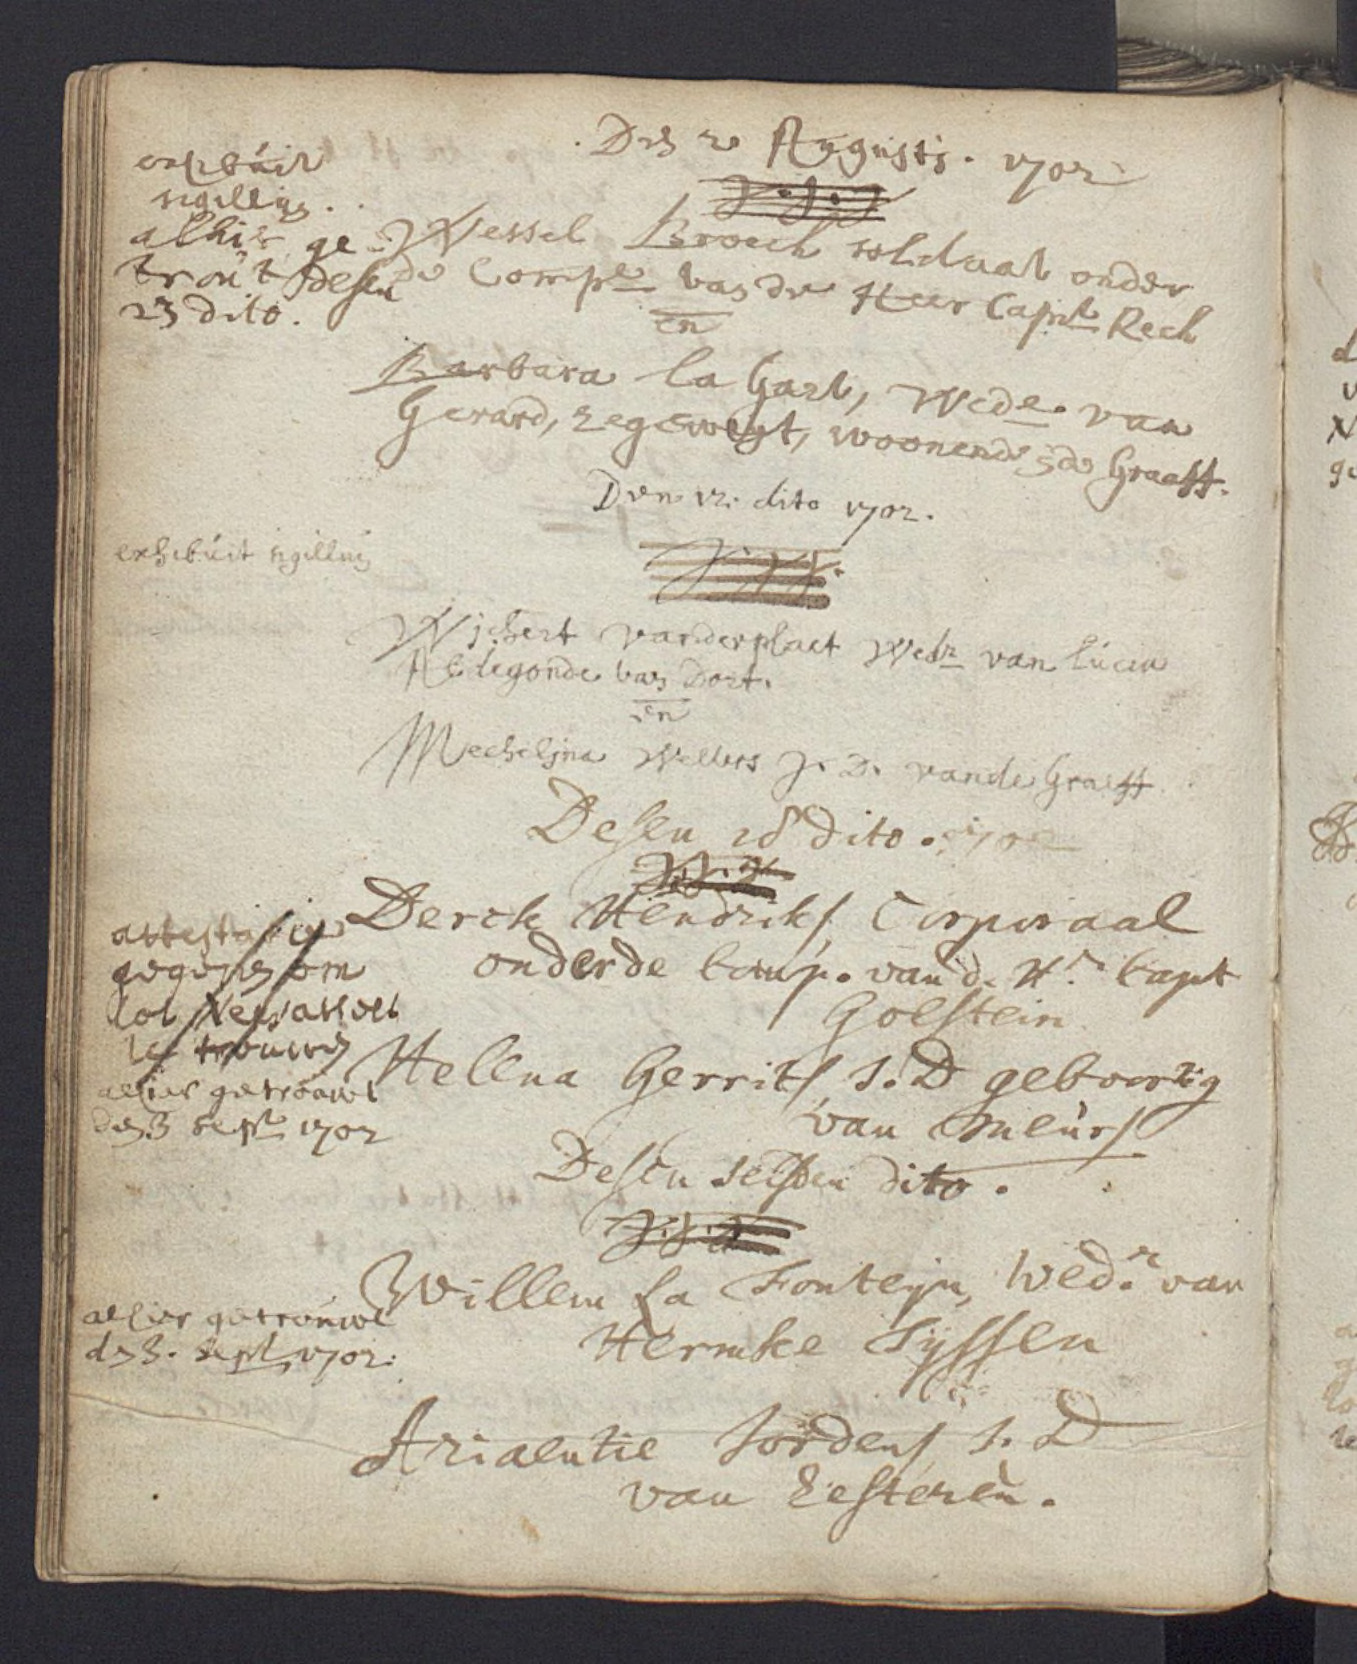 Den 2 Augusti. 1702
exhibuit
sigillum.
alhier ge
trout desen
23 dito.
Wessel Broeck soldaat onder
de Compe van de Heer Capit Reck
en
Barbara la Gart, Wede. van
Gerard, Zegewegt, woonende Graeff.
Den 12. dito 1702.
exhibuit sigillum
Wichert vanderplaet Wedr van Lucia
Aldegonde van Dort.
en
Mechelina Welters J. D. vande Graeff
Desen 18 dito. 1702
attestatie
gegeven om
tot
te trouwen
alhier getrouwt
den 3 Sept 1702
Derck Hendriks, Corporaal
onder de Comp. van d. Hr. Capt
Golstein
Helena Gerrits J. D geboortig
van Meurs
Desen selven dito.
alhier getrouwt
den 3. Sept 1702.
Willem La Fonteyn, Wed.r van
Hermke Tyssen
Ariaentie Jordens J. D
van Eesteren.